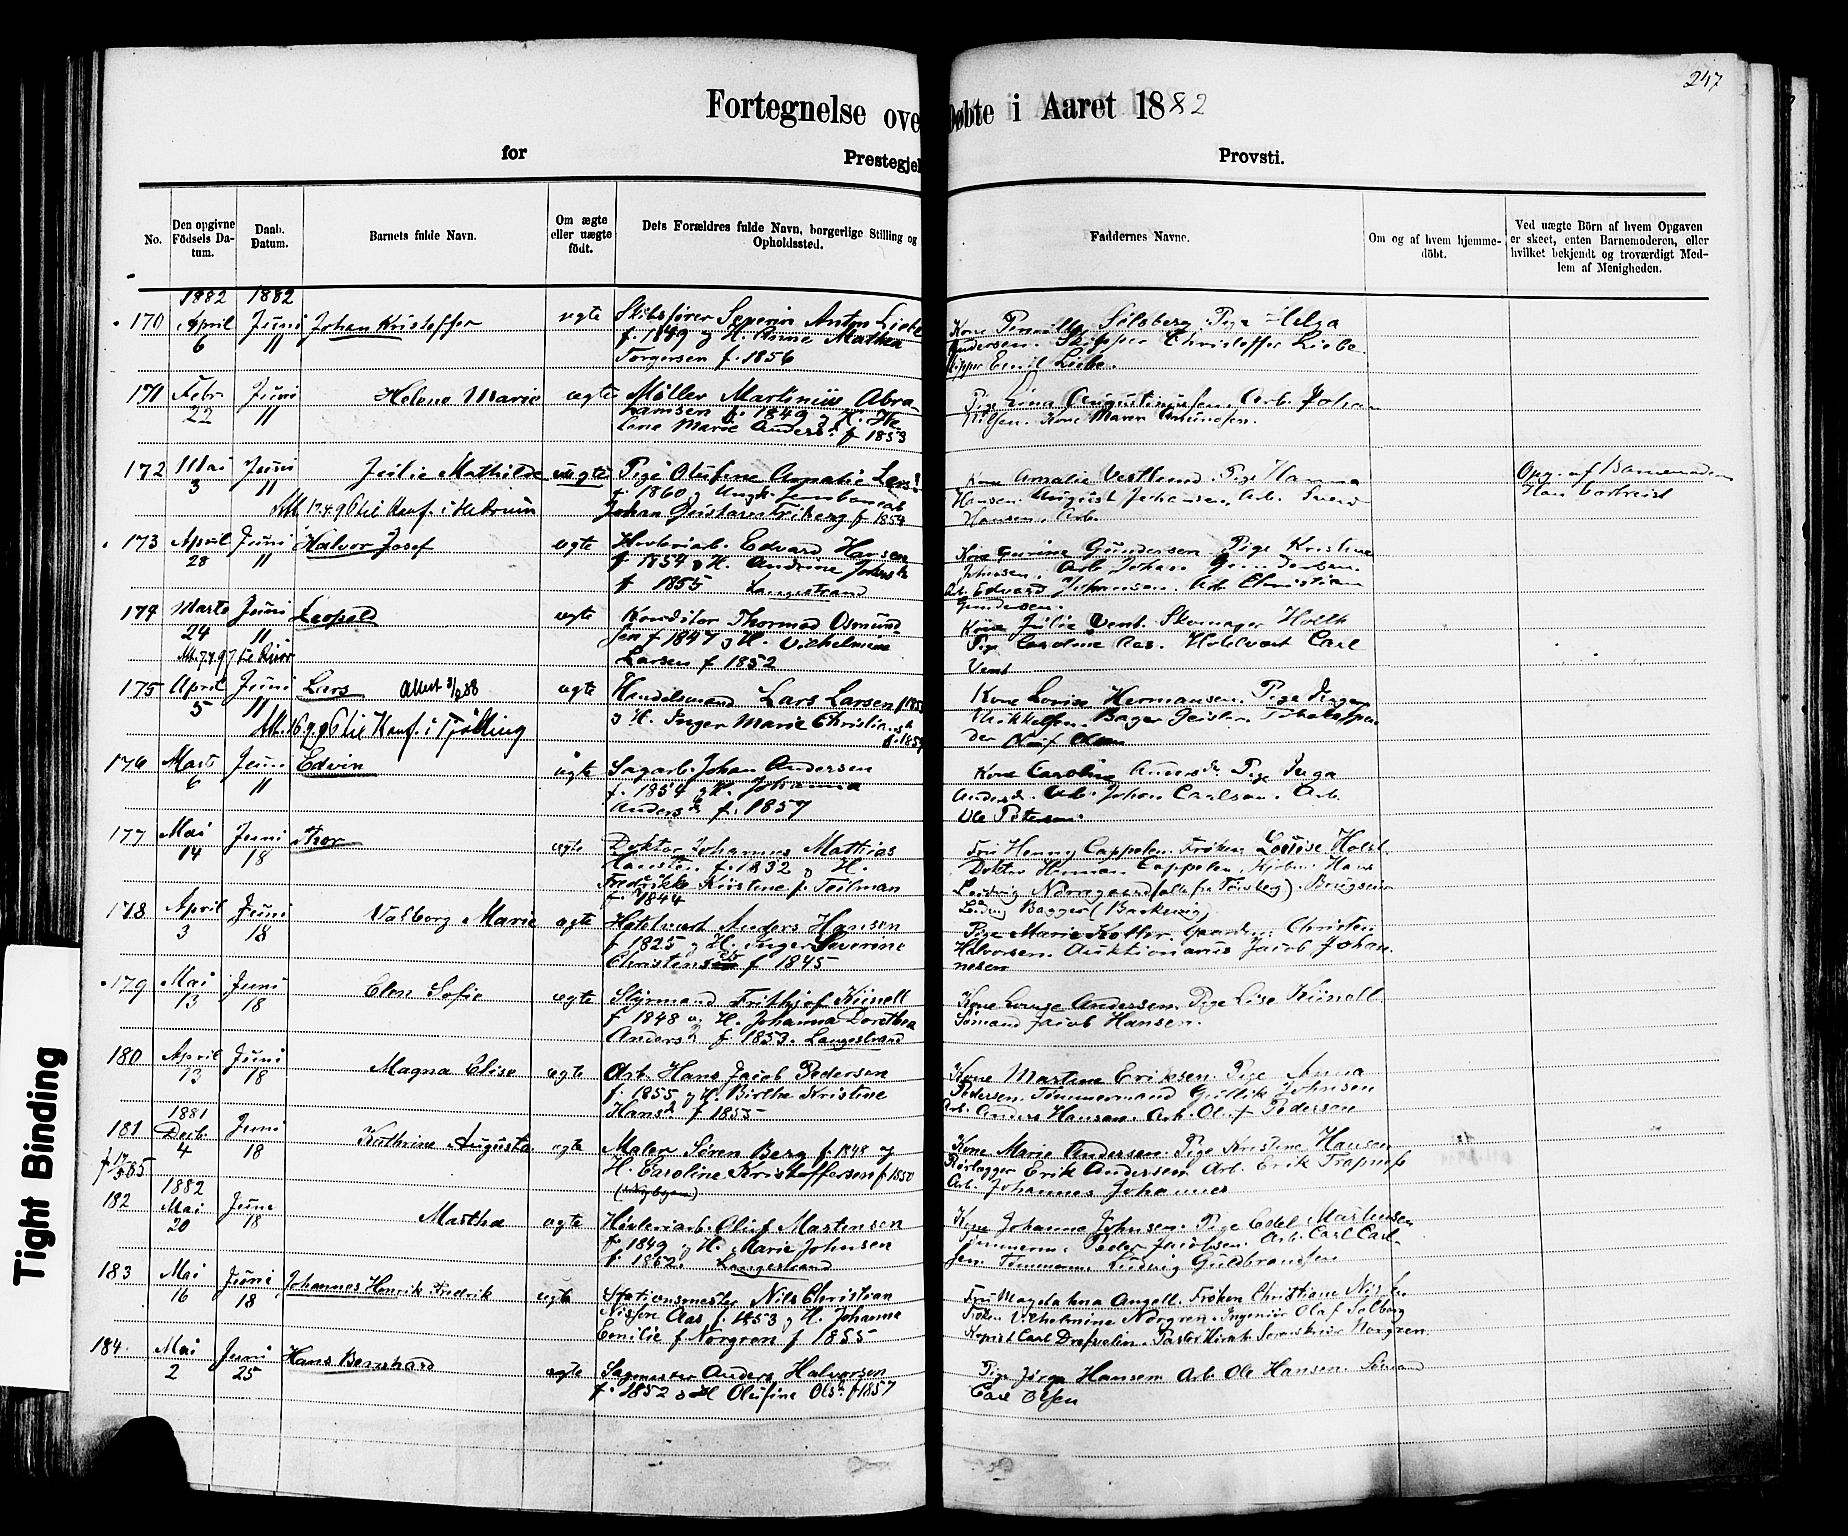 247
Fortegnelse ove Døbte i Aaret 1882
for Prestegjel Provsti.
No.
Den opgivne Födsels Datum.
Daab. Datum.
Barnets fulde Navn.
Om ægte eller uægte födt.
Dets Forældres fulde Navn, borgerlige Stilling og Opholdssted.
Faddernes Navne.
Om og af hvem hjemme-döbt.
Ved uægte Börn af hvem Opgaven er skeet, enten Barnemoderen, eller hvilket bekjendt og troværdigt Medlem af Menigheden.
1882 1882
170 April 6 Juni 11 Johan Kristoffer ægte Skibsfører Severin Anton Liebe
f. 1849 og H. Anne Mathea
Torgersen f. 1856
Kone Sølsberg. Pige Helga
Andersen. Skipper Christoffer Liebe.
Skipper Emil Liebe.
171 Febr 22 Juni 11 Helene Marie ægte Møller Martinius Abra-
hamsen f. 1849 og H. He-
lene Marie Anders: f 1853
Pige Lina Augustinussen. Arb. Johan
Nilsen. Kone Maren Amundsen.
172 Mai 3 Juni 11 Julie Mathilde uægte Pige Olufine Amalie Lars:
f. 1860 og Ungk.
Johan Gustav Friberg f 1854
Att. 17.4.96 til Konf. i Hedrum
Kone Amalie Vestlund. Pige Hanna
Hansen. August Johansen. Arb.
Hansen. Arb.
Opg. af Barnemoderen
173 April 28 Juni 11 Halvor Josef ægte Høvleriarb. Edvard Hansen
f 1854 og H. Andrine Johns dr
f. 1855 Langestrand
Kone Gurine Gundersen. Pige Kristine
Johnsen. Arb. Johan Gundersen.
Arb. Edvard Johannsen. Arb Christian
Gundersen.
174 Marts 24 Juni 11 Leopold ægte Konditor Thormod Osmund-
sen f 1847 og H. Vilhelmine
Larsen f 1852
Kone Julie Vent. Skomager Holth
Pige Caroline Aas. Hotelvært Carl
Vent
175 April 5 Juni 11 Lars Attest 3/6 88 ægte Handelsmand Lars Larsen
og H. Inger Marie Christians dr
f. 1854
Att. 16.9.96 til Konf. i Tjølling
Kone Lovise Hermansen. Pige Inger
Mikkelsen. Bager
der Oluf Olsen
176 Mart 6 Juni 11 Edvin ægte Sagarb. Johan Andersen
f. 1854 og H. Johanna
Anders dr f. 1857
Kone Caroline Anders dr Pige Inga
Anders dr. Arb. Johan Carlsen. Arb.
Ole Petersen.
177 Mai 14 Juni 18 Thor ægte Doktor Johannes Mathias
f. 1832 og H.
Fredrikke Kristine f. Teilman
f. 1844
Fru Henny Cappelen. Frøken Lovise Holst.
Doktor Herman Cappelen. Kjøbm. Hans
Ludvig Nørregaard (alle fra Tønsberg).
Ludvig Bagger
178 April 3 Juni 18 Valborg Marie ægte Hotelvært Anders Hansen
f 1825 og H. Inger Severine
Christens dr f 1845
Pige Marie Kotter. Christen
Halvorsen. Auktionarius Jacob Johan-
nesen
179 Mai 13 Juni 18 Elen Sofie ægte Styrmand Frithjof Künell
f 1848 og H. Johanna Dorethea
Anders dr f. 1853. Langestrand
Kone Lovise Andersen. Pige Lise Künell
Sømand Jacob Hansen.
180 April 13 Juni 18 Magna Elise ægte Arb. Hans Jacob Pedersen
f. 1855 og H. Birthe Kristine
Hans dr f. 1855
Kone Martine Eriksen. Pige Anna
Pedersen. Tømmermand Gullik Johnsen
Arb. Anders Hansen. Arb. Oluf Pedersen
1881
181 Decbr. 4 Juni 18 Kathrine Augusta ægte Maler Søren Berg f. 1848 og
H. Caroline Kristoffersen f 1850
(Nybyen)
Kone Marie Andersen. Pige Kristine Hansen
Rørlægger Erik Andersen Arb. Erik
Arb. Johannes Johannes
1882
182 Mai 20 Juni 18 Martha ægte Høvleriarb. Oluf Martensen
f. 1849 og H. Marie Johnsen
f. 1862. Langestrand
Kone Johanna Johnsen. Pige Edel Martinsen
Tømmerm. Peder Jacobsen. Arb. Carl Carl-
sen. Tømmerm. Ludvig Guldbrandsen
183 Mai 16 Juni 18 Johannes Henrik Fredrik ægte Stationsmester Nils Christian
Nissen Aas f. 1853 og H. Johanne
Emilie f. Norgren f 1855
Fru Magdalena Angell. Frøken Christiane
Frøken Vilhelmine Norgren. Ingeniør Olaf Solberg
Kopist Carl
184. Mai 2 Juni 25 Hans Bernhard ægte Sagmester Anders Halvorsen
f. 1852 og H Olufine Ols dr f 1857
Pige Jørga Hansen Arb. Ole Hansen. Sømand
Carl Olsen
Tight Binding